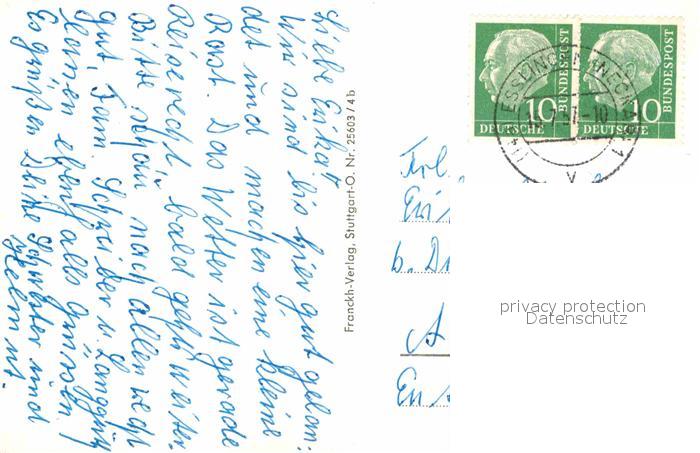 Liebe Erika!
Wir sind bis hier gut gelan-
det und machen eine kleine
Rast. Das Wetter ist gerade
Reiserecht bald geht weiter.
Bitte schön nach allen recht
gut, Fam. Schneider u.
lassen ebenfalls grüssen
Es grüßen Deine Schwester und
Helmut.
Franckh-Verlag, Stuttgart-O. Nr. 25603/4b
10 10
DEUTSCHE BUNDESPOST DEUTSCHE BUNDESPOST
ESSLINGEN (NECKAR) 1
Frl.
Eri
b. Dr
A
privacy protection
Datenschutz